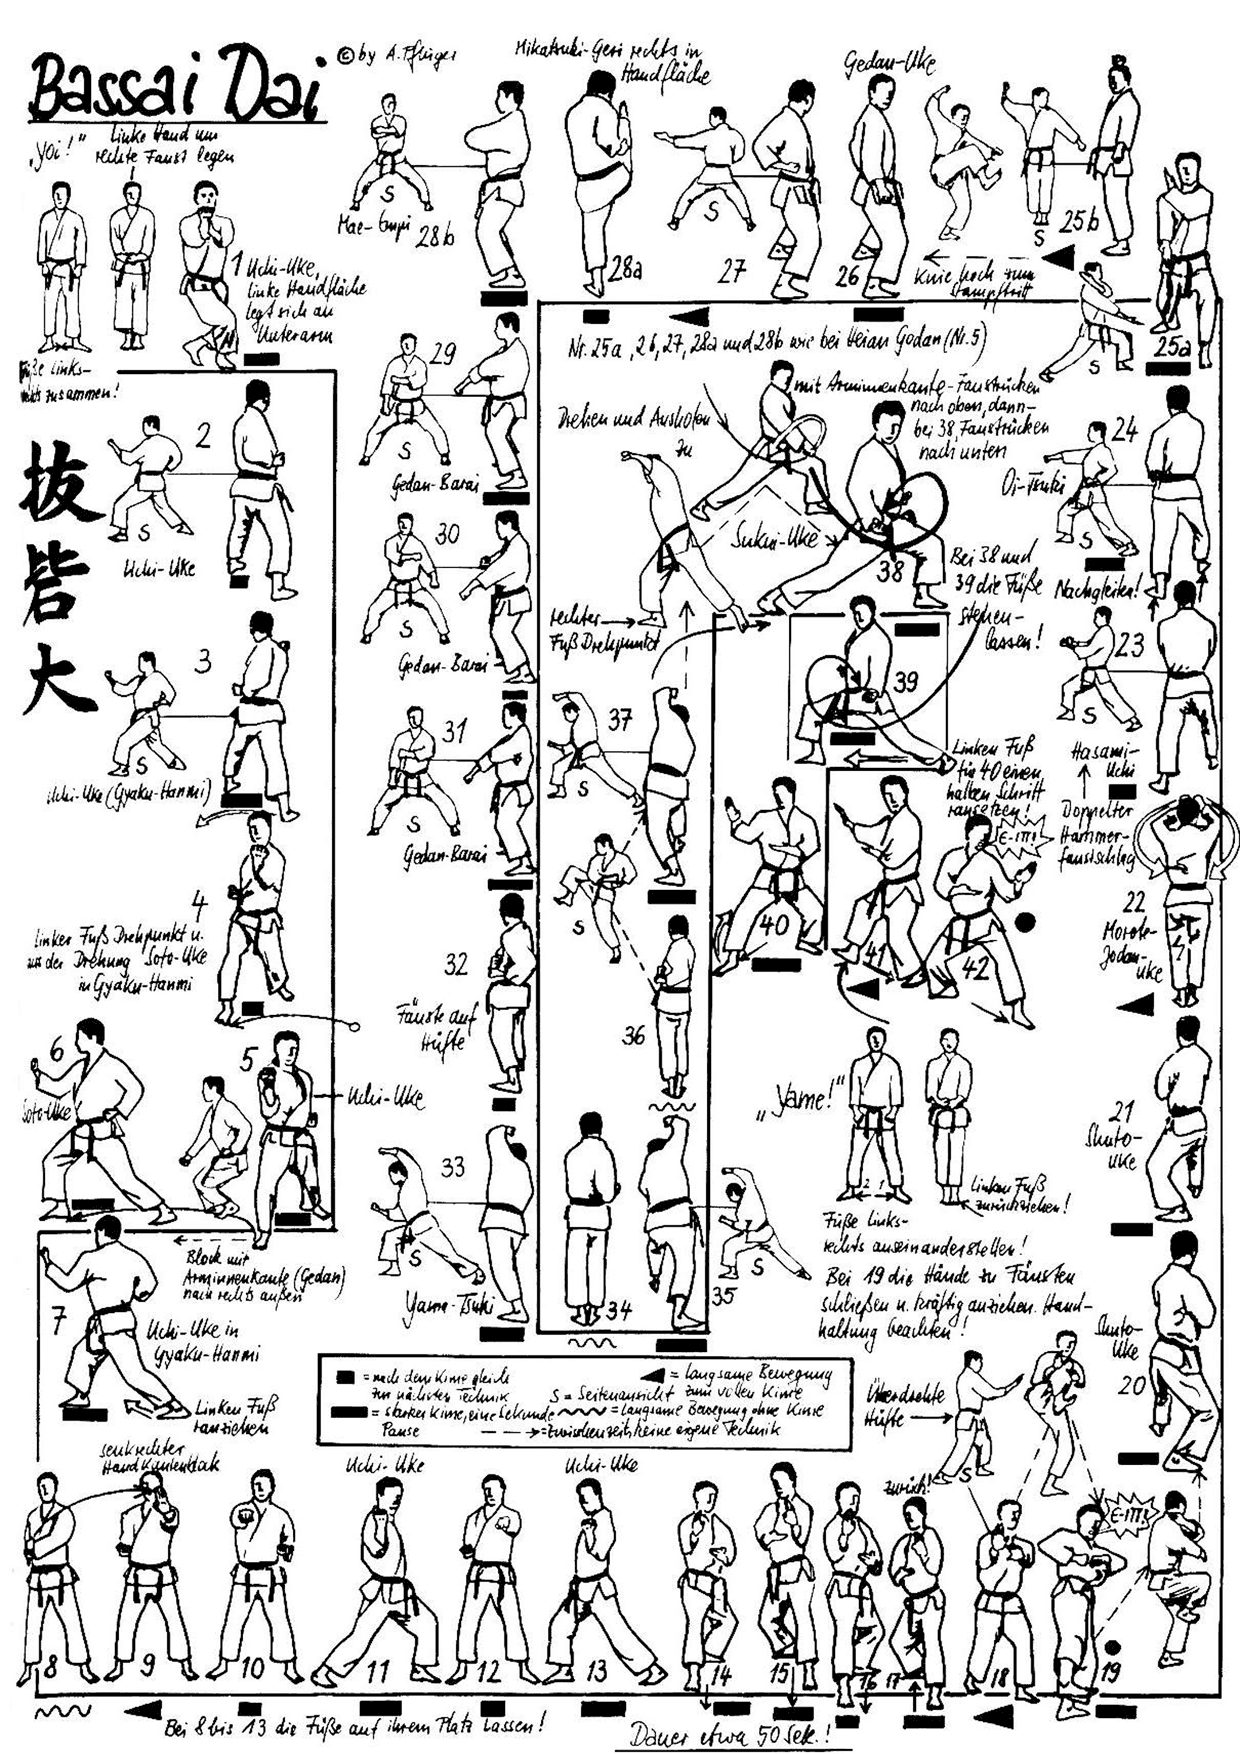 Bassai Dai
© by A. Pflüger
„Yoi!"
Linke Hand um
rechte Faust legen
Füße links-
rechts zusammen!
1 Uchi-Uke,
linke Handfläche
legt sich an
Unterarm
抜
砦
大
2
S
Uchi-Uke
3
S
Uchi-Uke (Gyaku-Hanmi)
4
Linker Fuß Drehpunkt u.
aus der Drehung Soto-Uke
in Gyaku-Hanmi
5
Uchi-Uke
6
Soto-Uke
Block mit
Arminnenkante (Gedan)
nach rechts außen
7
Uchi-Uke in
Gyaku-Hanmi
Linken Fuß
ranziehen
senkrechter
Handkantenblock
8
9
10
Uchi-Uke
11
12
Uchi-Uke
13
14
15
16
17
zurück!
18
19
E-ITT!
Bei 8 bis 13 die Füße auf ihrem Platz lassen!
Dauer etwa 50 Sek.!
Überdrehte
Hüfte
S
Shuto-
Uke
20
21
Shuto-
Uke
22
Morote-
Jodan-
Uke
23
S
Hasami-
Uchi
Doppelter
Hammer-
faustschlag
24
Oi-Tsuki
S
Nachgleiten!
25a
S
25b
S
Knie hoch zum
Stampftritt
Gedan-Uke
26
27
S
Mikatsuki-Geri rechts in
Handfläche
28a
S
Mae-Empi 28b
Nr. 25a, 26, 27, 28a und 28b wie bei Heian Godan (Nr. 5)
29
S
Gedan-Barai
30
S
Gedan-Barai
31
S
Gedan-Barai
32
Fäuste auf
Hüfte
33
S
Yama-Tsuki
34
35
S
36
S
37
S
Drehen und Ausholen
zu
mit Arminnenkante-Faustrücken
nach oben, dann-
bei 38, Faustrücken
nach unten
Sukui-Uke
38
rechter
Fuß Drehpunkt
Bei 38 und
39 die Füße
stehen-
lassen!
39
Linken Fuß
für 40 einen
halben Schritt
ransetzen!
40
41
42
E-ITT!
„Yame!"
2 1
Linken Fuß
zurückziehen!
Füße links-
rechts auseinanderstellen!
Bei 19 die Hände zu Fäusten
schließen u. kräftig anziehen. Hand-
haltung beachten!
= nach dem Kime gleich
zur nächsten Technik
= starker Kime, eine Sekunde
Pause
= langsame Bewegung
zum vollen Kime
S = Seitenansicht
= langsame Bewegung ohne Kime
= Zwischenzeit, keine eigene Technik